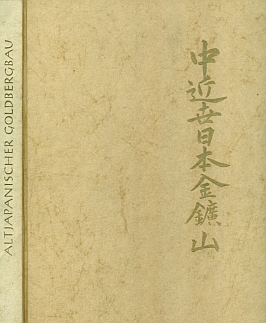 ALTJAPANISCHER GOLDBERGBAU
中近世日本金鑛山